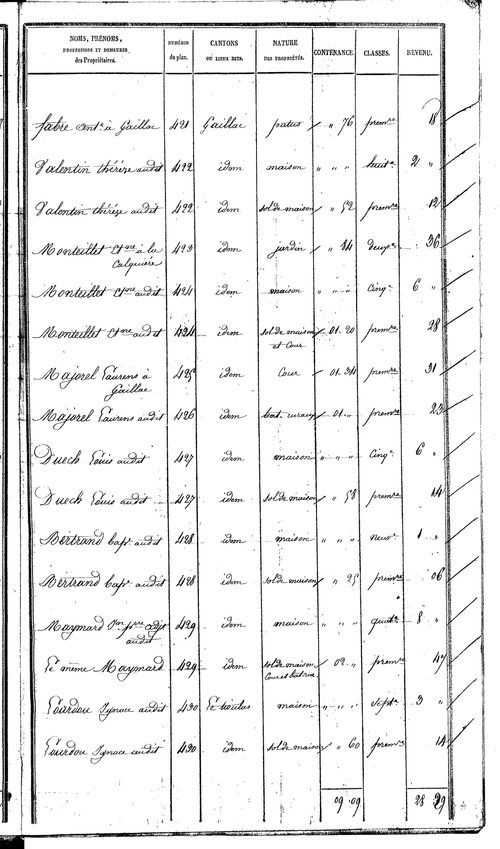 NOMS, PRÉNOMS, PROFESSIONS ET DEMEURES des Propriétaires. | NUMÉROS du plan. | CANTONS OU LIEUX DITS. | NATURE DES PROPRIÉTÉS. | CONTENANCE. | CLASSES. | REVENU.
fabre Ant.e à Gaillac 421 Gaillac patus " 76 prem.re 18
Valentin thérèze audit 422 idem maison " " " huit.e 2 "
Valentin thérèze audit 422 idem sol de maison " 52 prem.re 12
Monteillet Et.ne à la Calquiére 423 idem jardin " 44 deux.e 36
Monteillet Et.ne audit 424 idem maison " " " Cinq.e 6 "
Monteillet Et.ne audit 424 idem sol de maison et Cour 01.20 prem.re 28
Majorel Laurens à Gaillac 425 idem Cour 01.34 prem.re 31
Majorel Laurens audit 426 idem bat. ruraux 01 " prem.re 23
Duech Louis audit 427 idem maison " " " Cinq.e 6 "
Duech Louis audit 427 idem sol de maison " 58 prem.re 14
Bertrand bap.te audit 428 idem maison " " " neuv.e 1 "
Bertrand bap.te audit 428 idem sol de maison " 25 prem.re 06
Maymard audit 429 idem maison " " " quat.e 8 "
Le même Maymard 429 idem sol de maison Cour et 02 " prem.re 47
Lourdou Ignace audit 430 maison " " " sept.e 3 "
Lourdou Ignace audit 430 idem sol de maison " 60 prem.re 14
09.09 28 29